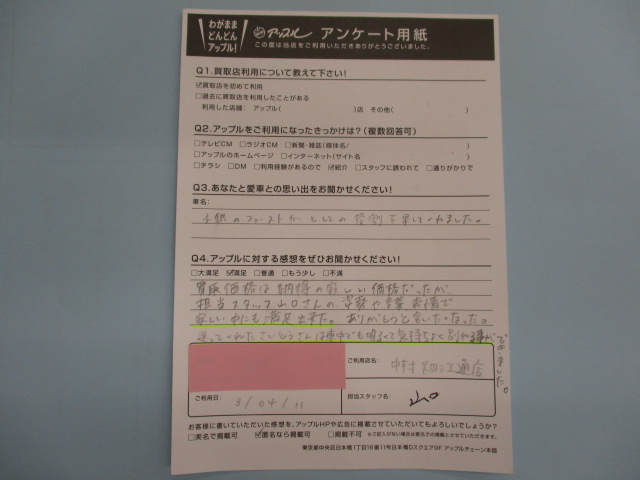 わがまま
どんどん
アップル!
アップル アンケート用紙
この度は当店をご利用いただきありがとうございました。
Q1.買取店利用について教えて下さい!
☑買取店を初めて利用
□過去に買取店を利用したことがある
利用した店舗: アップル( )店 その他( )
Q2.アップルをご利用になったきっかけは?(複数回答可)
□テレビCM □ラジオCM □新聞・雑誌(媒体名/ )
□アップルのホームページ □インターネット(サイト名 )
□チラシ □DM □利用経験があるので ☑紹介 □スタッフに誘われて □通りがかりで
Q3.あなたと愛車との思い出をお聞かせください!
車名:
子供のファーストカーとしての役割を果してくれました。
Q4.アップルに対する感想をぜひお聞かせください!
□大満足 ☑満足 □普通 □もう少し □不満
買取価格は納得の厳しい価格だったが、
担当スタッフ山口さんの姿勢や言葉 表情で
厳しい中にも満足出来た。ありがとうと言いたくなった。
送ってくれたさいとうさんは車中でも明るくて気持ちよくお別れが
できました。
ご利用店名:
中村
店
ご利用日: 3/04/11
担当スタッフ名: 山口
お客様に書いていただいた感想を、アップルHPや広告に掲載させていただいてもよろしいでしょうか?
□実名で掲載可 ☑匿名なら掲載可 □掲載不可 ※ご記入がない場合は匿名での掲載とさせていただきます。
東京都中央区日本橋1丁目16番11号日本橋Dスクエア9F アップルチェーン本部